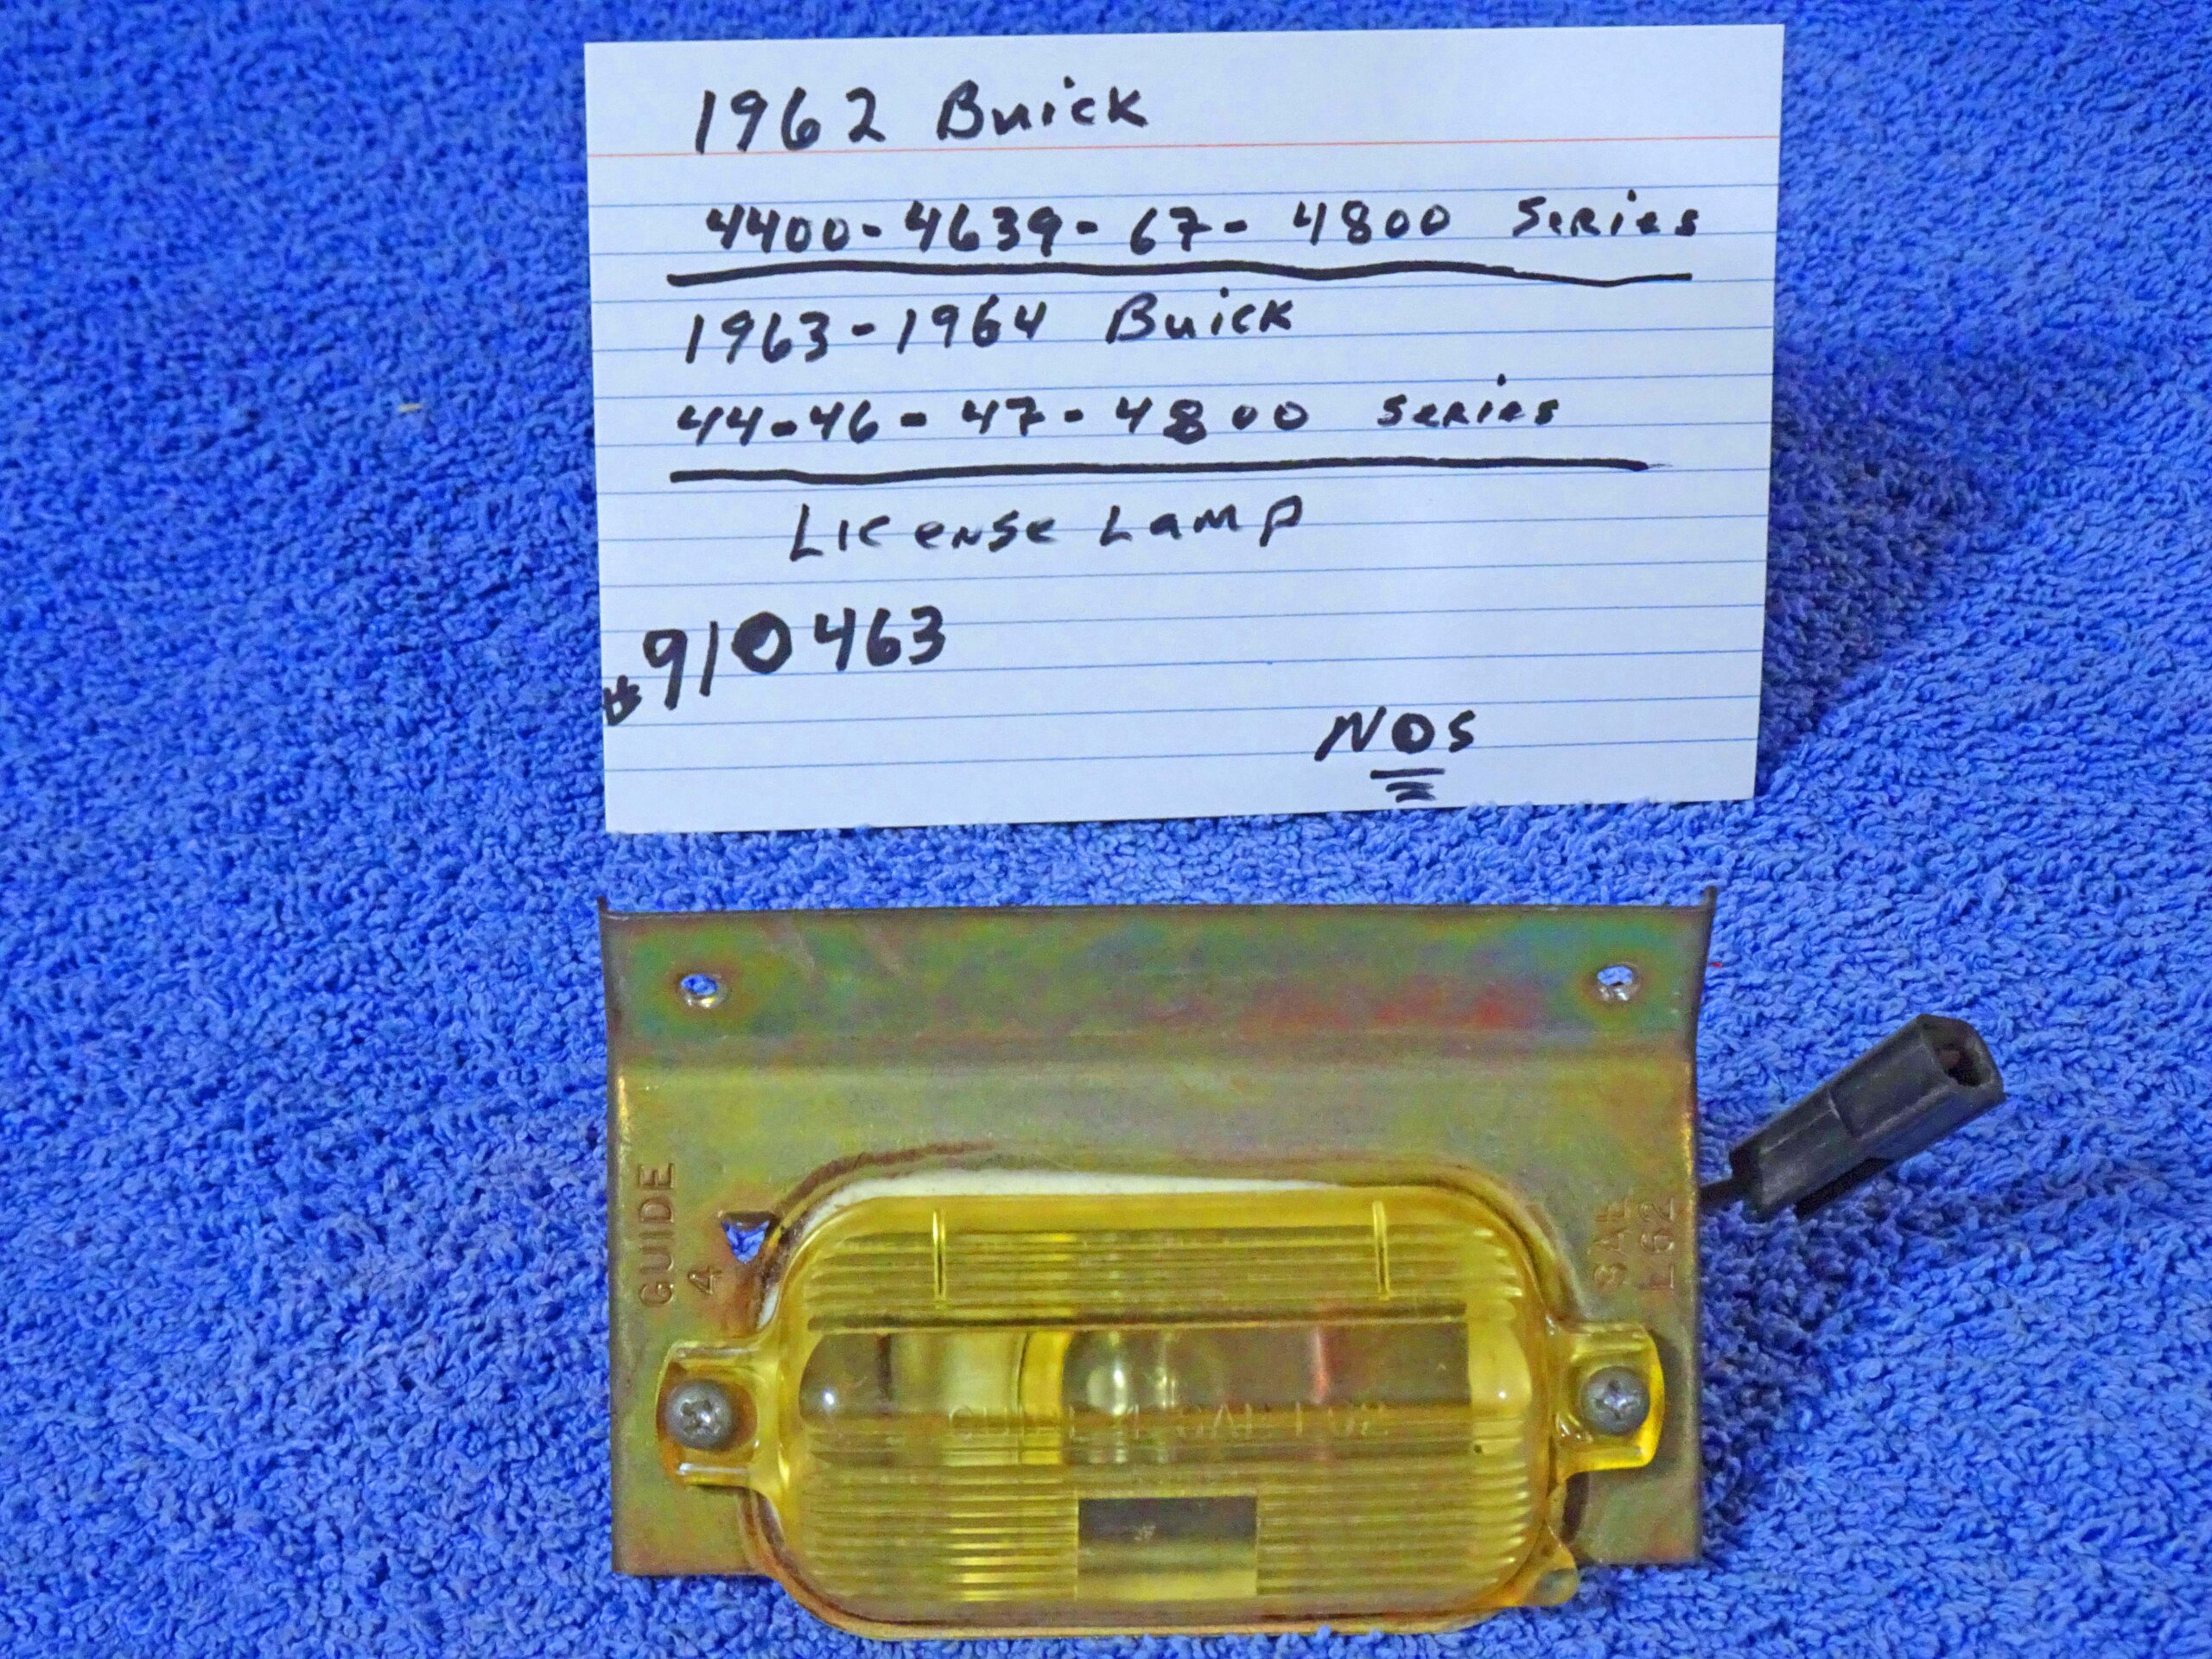 1962 Buick
4400-4639-67-4800 Series
1963-1964 Buick
44-46-47-4800 Series
License Lamp
#910463
NOS
GUIDE
4
SAE
L 62